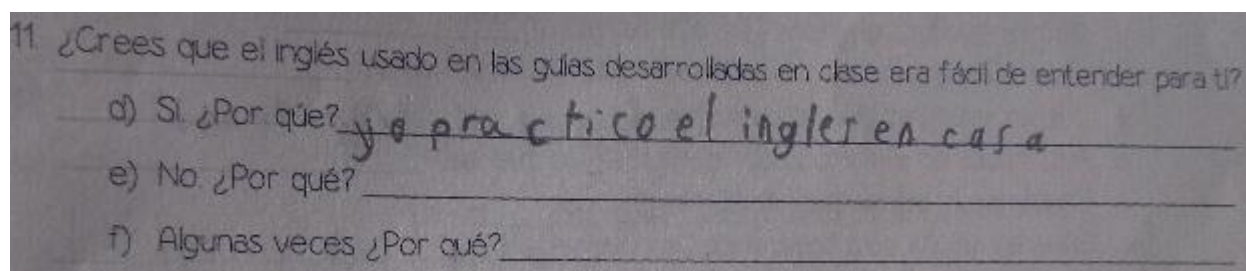 11. ¿Crees que el inglés usado en las guías desarrolladas en clase era fácil de entender para ti?
d) Si. ¿Por qúe? yo practico el ingles en casa
e) No. ¿Por qué?
f) Algunas veces ¿Por qué?